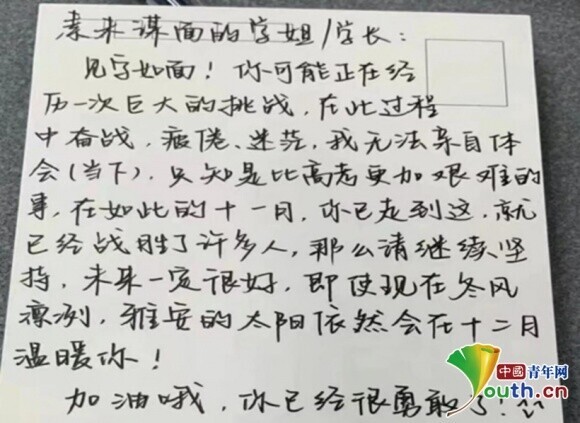 素未谋面的学姐/学长:
见字如面!你可能正在经
历一次巨大的挑战,在此过程
中奋战、疲倦、迷茫,我无法亲自体
会(当下),只知是比高考更加艰难的
事,在如此的十一月,你已走到这,就
已经战胜了许多人,那么请继续坚
持,未来一定很好,即使现在冬风
凛冽,雅安的太阳依然会在十二月
温暖你!
加油哦,你已经很勇敢了!
中國青年网
Youth.cn